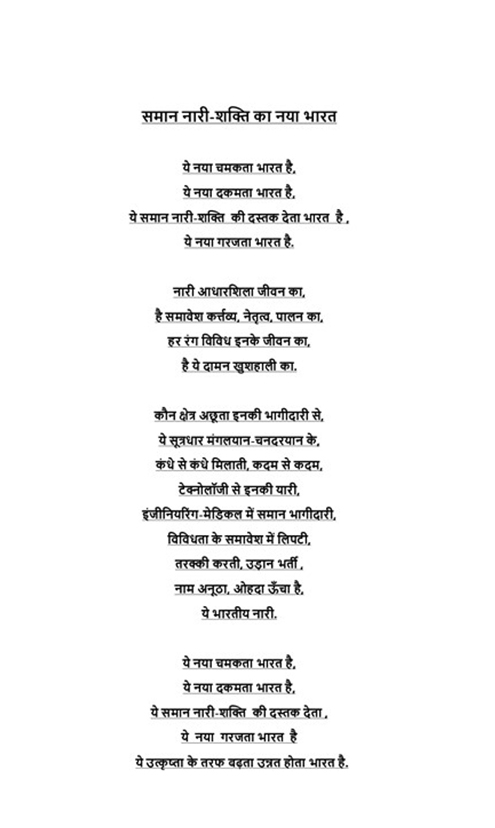 समान नारी-शक्ति का नया भारत
ये नया चमकता भारत है,
ये नया दकमता भारत है,
ये समान नारी-शक्ति की दस्तक देता भारत है ,
ये नया गरजता भारत है.
नारी आधारशिला जीवन का,
है समावेश कर्त्तव्य, नेतृत्व, पालन का,
हर रंग विविध इनके जीवन का,
है ये दामन खुशहाली का.
कौन क्षेत्र अछूता इनकी भागीदारी से,
ये सूत्रधार मंगलयान-चनदरयान के,
कंधे से कंधे मिलाती, कदम से कदम,
टेक्नोलॉजी से इनकी यारी,
इंजीनियरिंग-मेडिकल में समान भागीदारी,
विविधता के समावेश में लिपटी,
तरक्की करती, उड़ान भर्ती ,
नाम अनूठा, ओहदा ऊँचा है,
ये भारतीय नारी.
ये नया चमकता भारत है,
ये नया दकमता भारत है,
ये समान नारी-शक्ति की दस्तक देता ,
ये नया गरजता भारत है
ये उत्कृष्ता के तरफ बढ़ता उन्नत होता भारत है.